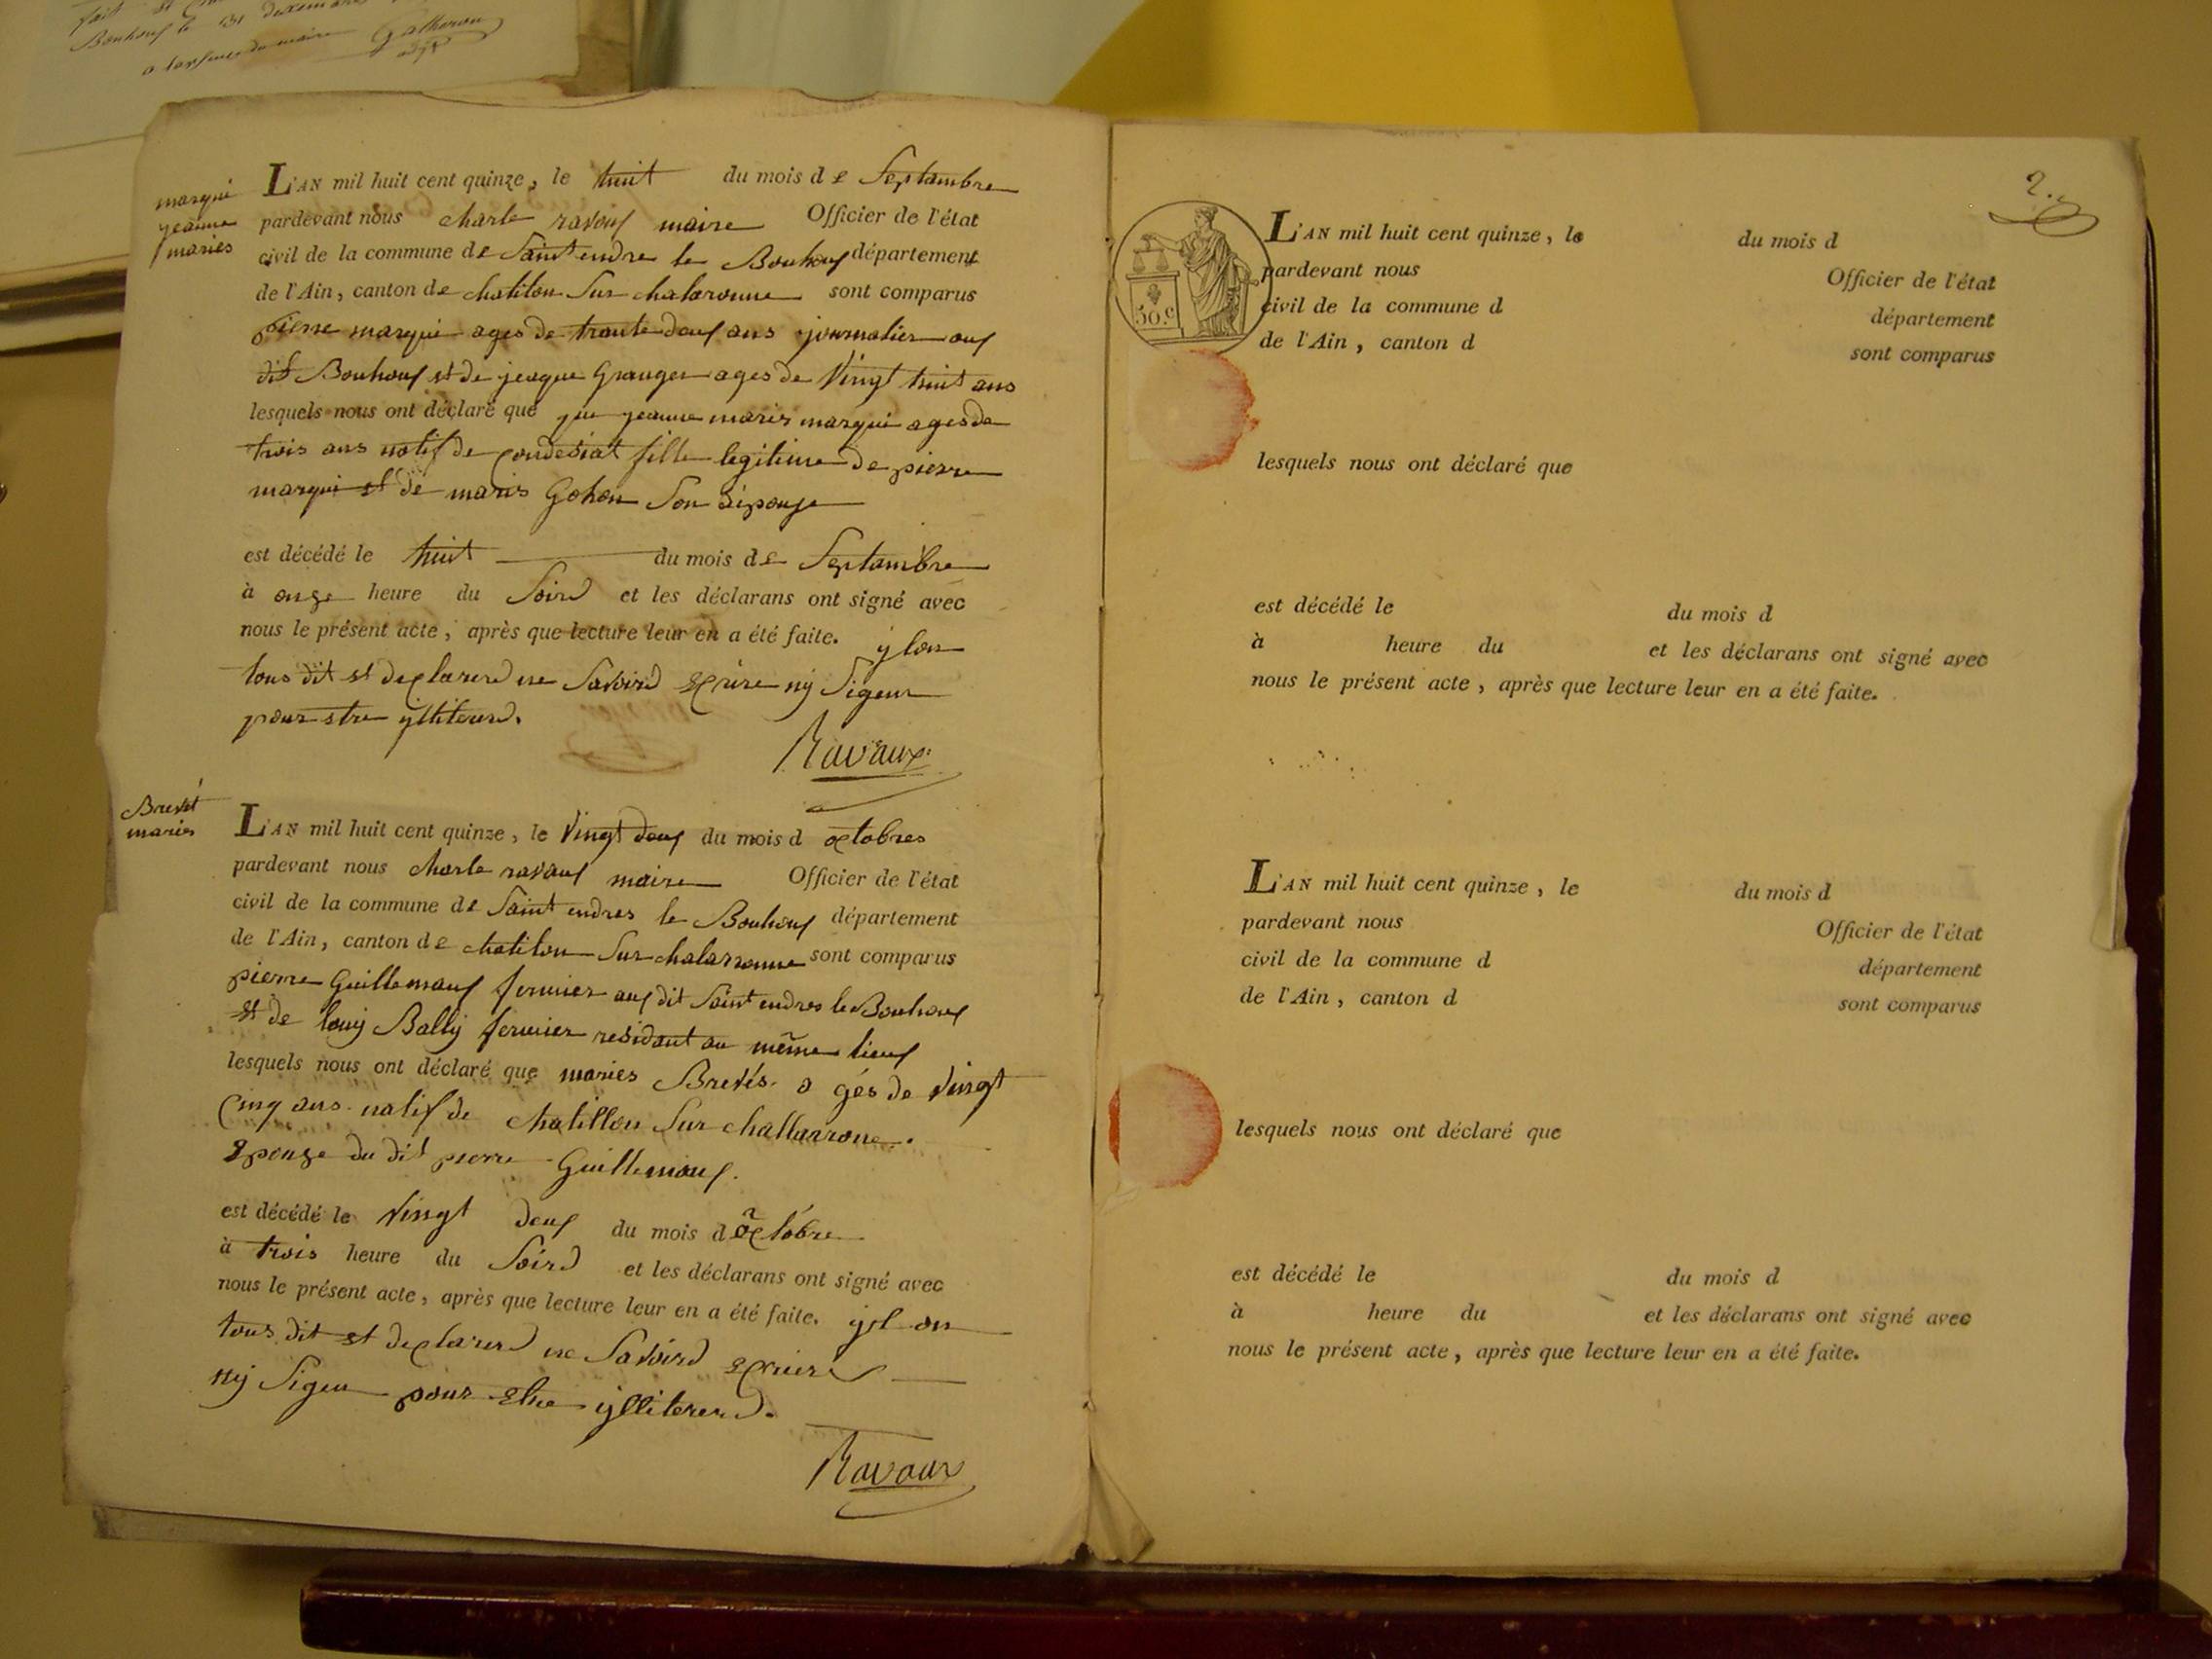 Bouhouf le 31 dexembre
marqui
jeanne
maries
L'AN mil huit cent quinze, le huit du mois de Septambre
pardevant nous charle ravouf maire Officier de l'état
civil de la commune de Saint endre le Bouhouf département
de l'Ain, canton de chatilon Sur chalaronne sont comparus
pierre marqui ages de trante douf ans journalier auf
dit Bouhouf et de jeaque Granger ages de Vingt huit ans
lesquels nous ont déclaré que que jeanne maries marqui ages de
trois ans natif de Condesiat fille legitime de pierre
marqui et de maris Gohon Son Eipouse
est décédé le huit du mois de Septambre
à onze heure du Soird et les déclarans ont signé avec
nous le présent acte, après que lecture leur en a été faite. y lon
tous dit et declarerd ne Savoird Ecrire ny Sigeur
pour etre yllitererd.
Ravaux
Brevet
maries
L'AN mil huit cent quinze, le Vingt douf du mois d octobres
pardevant nous charle ravauf maire Officier de l'état
civil de la commune de Saint endres le Bouhouf département
de l'Ain, canton de chatilon Sur chalaronne sont comparus
pierre Guillemauf fermier auf dit Saint endres le Bouhouf
et de louy Bally fermier residant au même lieuf
lesquels nous ont déclaré que maries Brevés a gés de Vingt
Cinq ans natif de chatillon Sur challarrone.
Epouse du dit pierre Guillemauf.
est décédé le Vingt douf du mois d octobre
à trois heure du Soird et les déclarans ont signé avec
nous le présent acte, après que lecture leur en a été faite. yl on
tous dit et declarerd ne Savoird Ecrire
ny Sigeu pour Etre yllitererd.
Ravaux
2.
50.c
L'AN mil huit cent quinze, le du mois d
pardevant nous Officier de l'état
civil de la commune d département
de l'Ain, canton d sont comparus
lesquels nous ont déclaré que
est décédé le du mois d
à heure du et les déclarans ont signé avec
nous le présent acte, après que lecture leur en a été faite.
L'AN mil huit cent quinze, le du mois d
pardevant nous Officier de l'état
civil de la commune d département
de l'Ain, canton d sont comparus
lesquels nous ont déclaré que
est décédé le du mois d
à heure du et les déclarans ont signé avec
nous le présent acte, après que lecture leur en a été faite.